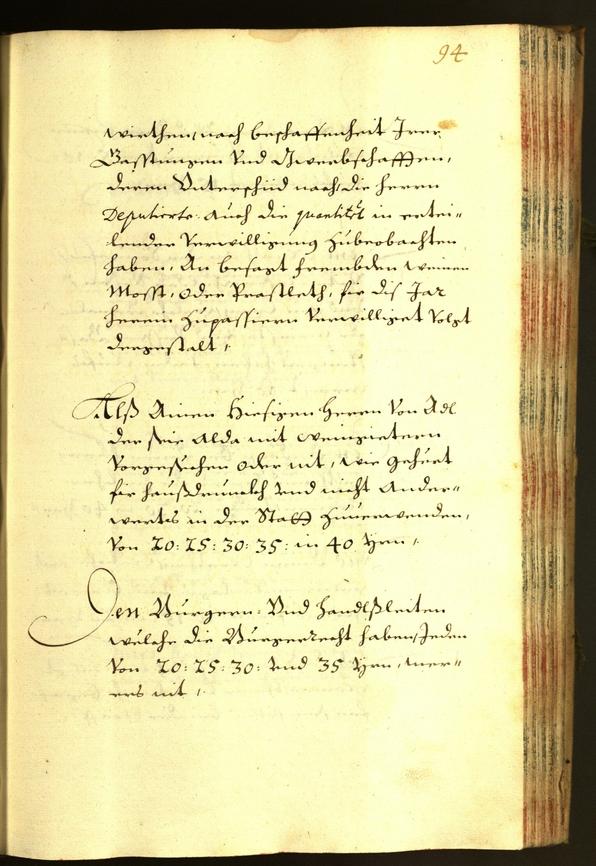 94
wirthen, nach beschaffenheit Irer
Gasstungen vnd Gwerbschafften,
deren Vnterschiid nach, die herrn
Deputierte. auch die quantitet in ertei-
lender Verwilligung zubeobachten
haben, An besagt frembden weinen
Mosst, oder Praschleth, fir dis Jar
herein zupassiern verwilliget volgt
dergestalt,
Alß Ainen hiesigen herrn von Adl
der seie alda mit weingietern
vorgesechen oder nit, wie gehert
fir haußdrunckh vnd nicht ander-
werts in der Statt zuuerwenden,
von 20: 25: 30: 35: in 40 Yrn,
Den Burgern: Vnd handlßleiten
wölche die Burgerrecht haben, Jeden
von 20: 25: 30: vnd 35 Yrn, mer-
ers nit,